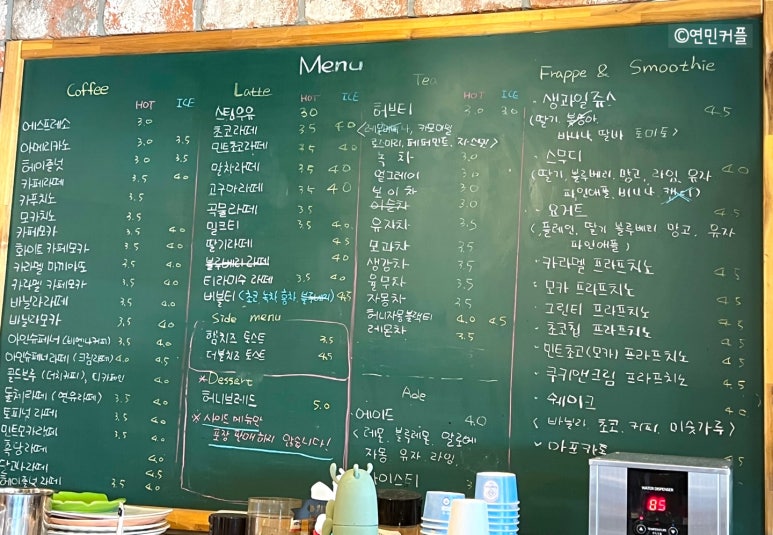 ©연민커플
Menu
Coffee
HOT ICE
에스프레소 3.0
아메리카노 3.0 3.5
헤이즐넛 3.0 3.5
카페라떼 3.5 4.0
카푸치노 3.5
모카치노 3.5
카페모카 3.5 4.0
화이트 카페모카 3.5 4.0
카라멜 마끼아또 3.5 4.0
카라멜 카페모카 3.5 4.0
바닐라라떼 3.5 4.0
바닐라모카 3.5 4.0
아인슈페너 (비엔나커피) 3.5 4.0
아인슈페너라떼 (크림라떼) 4.0 4.5
콜드브루 (더치커피), 디카페인 4.0
돌체라떼 (연유라떼) 3.5 4.0
토피넛 라떼 3.5 4.0
민트모카라떼 3.5 4.0
흑당라떼 4.0
라떼 4.5
헤이즐넛 라떼 3.5 4.0
Latte
HOT ICE
스팀우유 3.0
초코라떼 3.5 4.0
민트초코라떼 3.5 4.0
말차라떼 3.5 4.0
고구마라떼 3.5 4.0
곡물라떼 3.5
밀크티 3.5 4.0
딸기라떼 4.5
블루베리 라떼 4.0
티라미수 라떼 3.5 4.0
버블티 (초코 녹차 홍차 블루베리) 4.5
Side menu
햄치즈 토스트 3.5
더블치즈 토스트 4.5
*Dessert
허니브레드 5.0
* 사이드 메뉴만
포장 판매 하지 않습니다!
Tea
HOT ICE
허브티 3.0 3.0
<레몬버베나, 카모마일
로즈마리, 페퍼민트, 자스민>
녹차 3.0
얼그레이 3.0
보이차 3.0
이슬차 3.0
유자차 3.5
모과차 3.5
생강차 3.5
율무차 3.5
자몽차 3.5
허니자몽블랙티 4.0 4.5
레몬차 3.5
Ade
에이드 4.0
<레몬, 블루레몬, 깔루에
자몽, 유자, 라임,
아이스티
Frappe & Smoothie
· 생과일쥬스 4.5
(딸기,
바나나, 딸바 토마토)
· 스무디 4.0
(딸기, 블루베리, 망고, 라임, 유자
파인애플, 바나나,
· 요거트 4.5
(플레인, 딸기 블루베리 망고, 유자
파인애플)
· 카라멜 프라프치노 4.5
· 모카 프라프치노 4.5
· 그린티 프라프치노 4.5
· 초코칩 프라프치노 4.5
· 민트초코(모카) 프라프치노 4.5
· 쿠키앤크림 프라프치노 4.5
· 쉐이크 4.0
<바닐라, 초코, 커피, 미숫가루>
· 아포카토 4.5
WATER DISPENSER
85